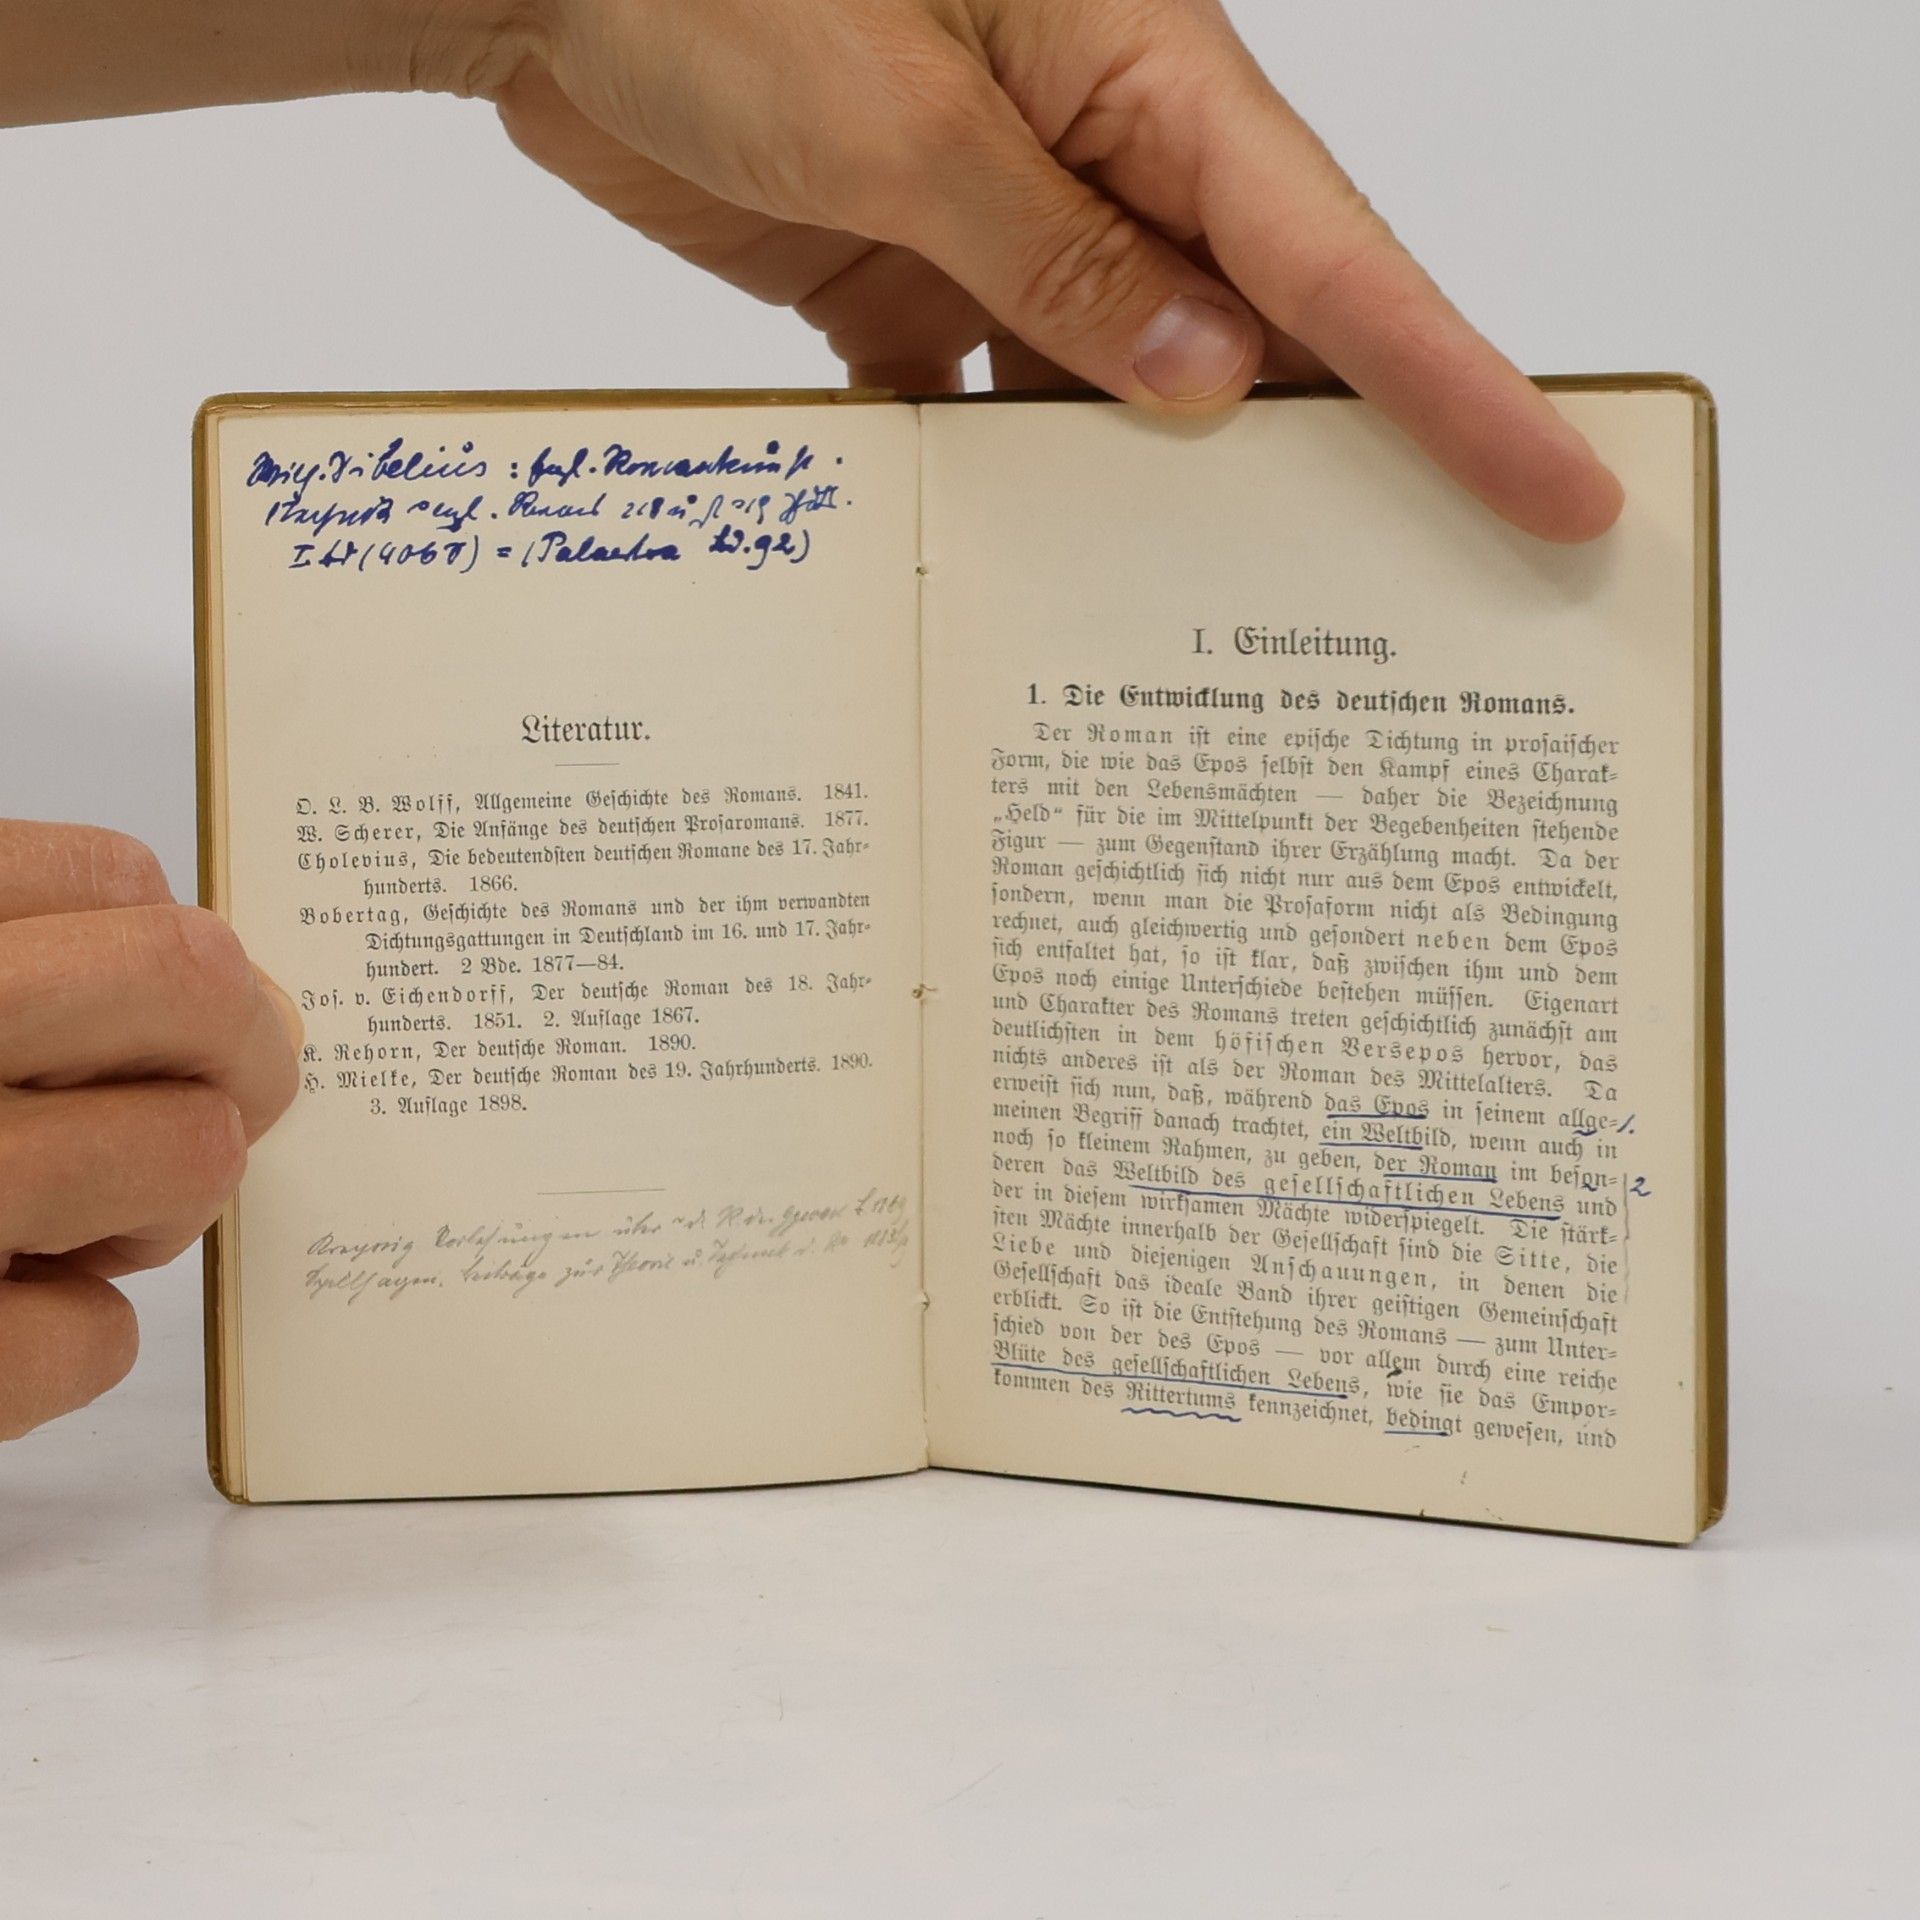 : engl. Romankunst.
engl. Roman 18 u. 19
I. Bd (406 S) = (Palaestra Bd. 92)
Literatur.
O. L. B. Wolff, Allgemeine Geschichte des Romans. 1841.
W. Scherer, Die Anfänge des deutschen Prosaromans. 1877.
Cholevius, Die bedeutendsten deutschen Romane des 17. Jahr-
hunderts. 1866.
Bobertag, Geschichte des Romans und der ihm verwandten
Dichtungsgattungen in Deutschland im 16. und 17. Jahr-
hundert. 2 Bde. 1877—84.
Jos. v. Eichendorff, Der deutsche Roman des 18. Jahr-
hunderts. 1851. 2. Auflage 1867.
K. Rehorn, Der deutsche Roman. 1890.
H. Mielke, Der deutsche Roman des 19. Jahrhunderts. 1890.
3. Auflage 1898.
Vorlesungen über d. R. der
Spielhagen. Beiträge zur Theorie u. Technik d.
I. Einleitung.
1. Die Entwicklung des deutschen Romans.
Der Roman ist eine epische Dichtung in prosaischer
Form, die wie das Epos selbst den Kampf eines Charak-
ters mit den Lebensmächten — daher die Bezeichnung
„Held“ für die im Mittelpunkt der Begebenheiten stehende
Figur — zum Gegenstand ihrer Erzählung macht. Da der
Roman geschichtlich sich nicht nur aus dem Epos entwickelt,
sondern, wenn man die Prosaform nicht als Bedingung
rechnet, auch gleichwertig und gesondert neben dem Epos
sich entfaltet hat, so ist klar, daß zwischen ihm und dem
Epos noch einige Unterschiede bestehen müssen. Eigenart
und Charakter des Romans treten geschichtlich zunächst am
deutlichsten in dem höfischen Versepos hervor, das
nichts anderes ist als der Roman des Mittelalters. Da
erweist sich nun, daß, während das Epos in seinem allge- 1.
meinen Begriff danach trachtet, ein Weltbild, wenn auch in
noch so kleinem Rahmen, zu geben, der Roman im beson- 2
deren das Weltbild des gesellschaftlichen Lebens und
der in diesem wirksamen Mächte widerspiegelt. Die stärk-
sten Mächte innerhalb der Gesellschaft sind die Sitte, die
Liebe und diejenigen Anschauungen, in denen die
Gesellschaft das ideale Band ihrer geistigen Gemeinschaft
erblickt. So ist die Entstehung des Romans — zum Unter-
schied von der des Epos — vor allem durch eine reiche
Blüte des gesellschaftlichen Lebens, wie sie das Empor-
kommen des Rittertums kennzeichnet, bedingt gewesen, und